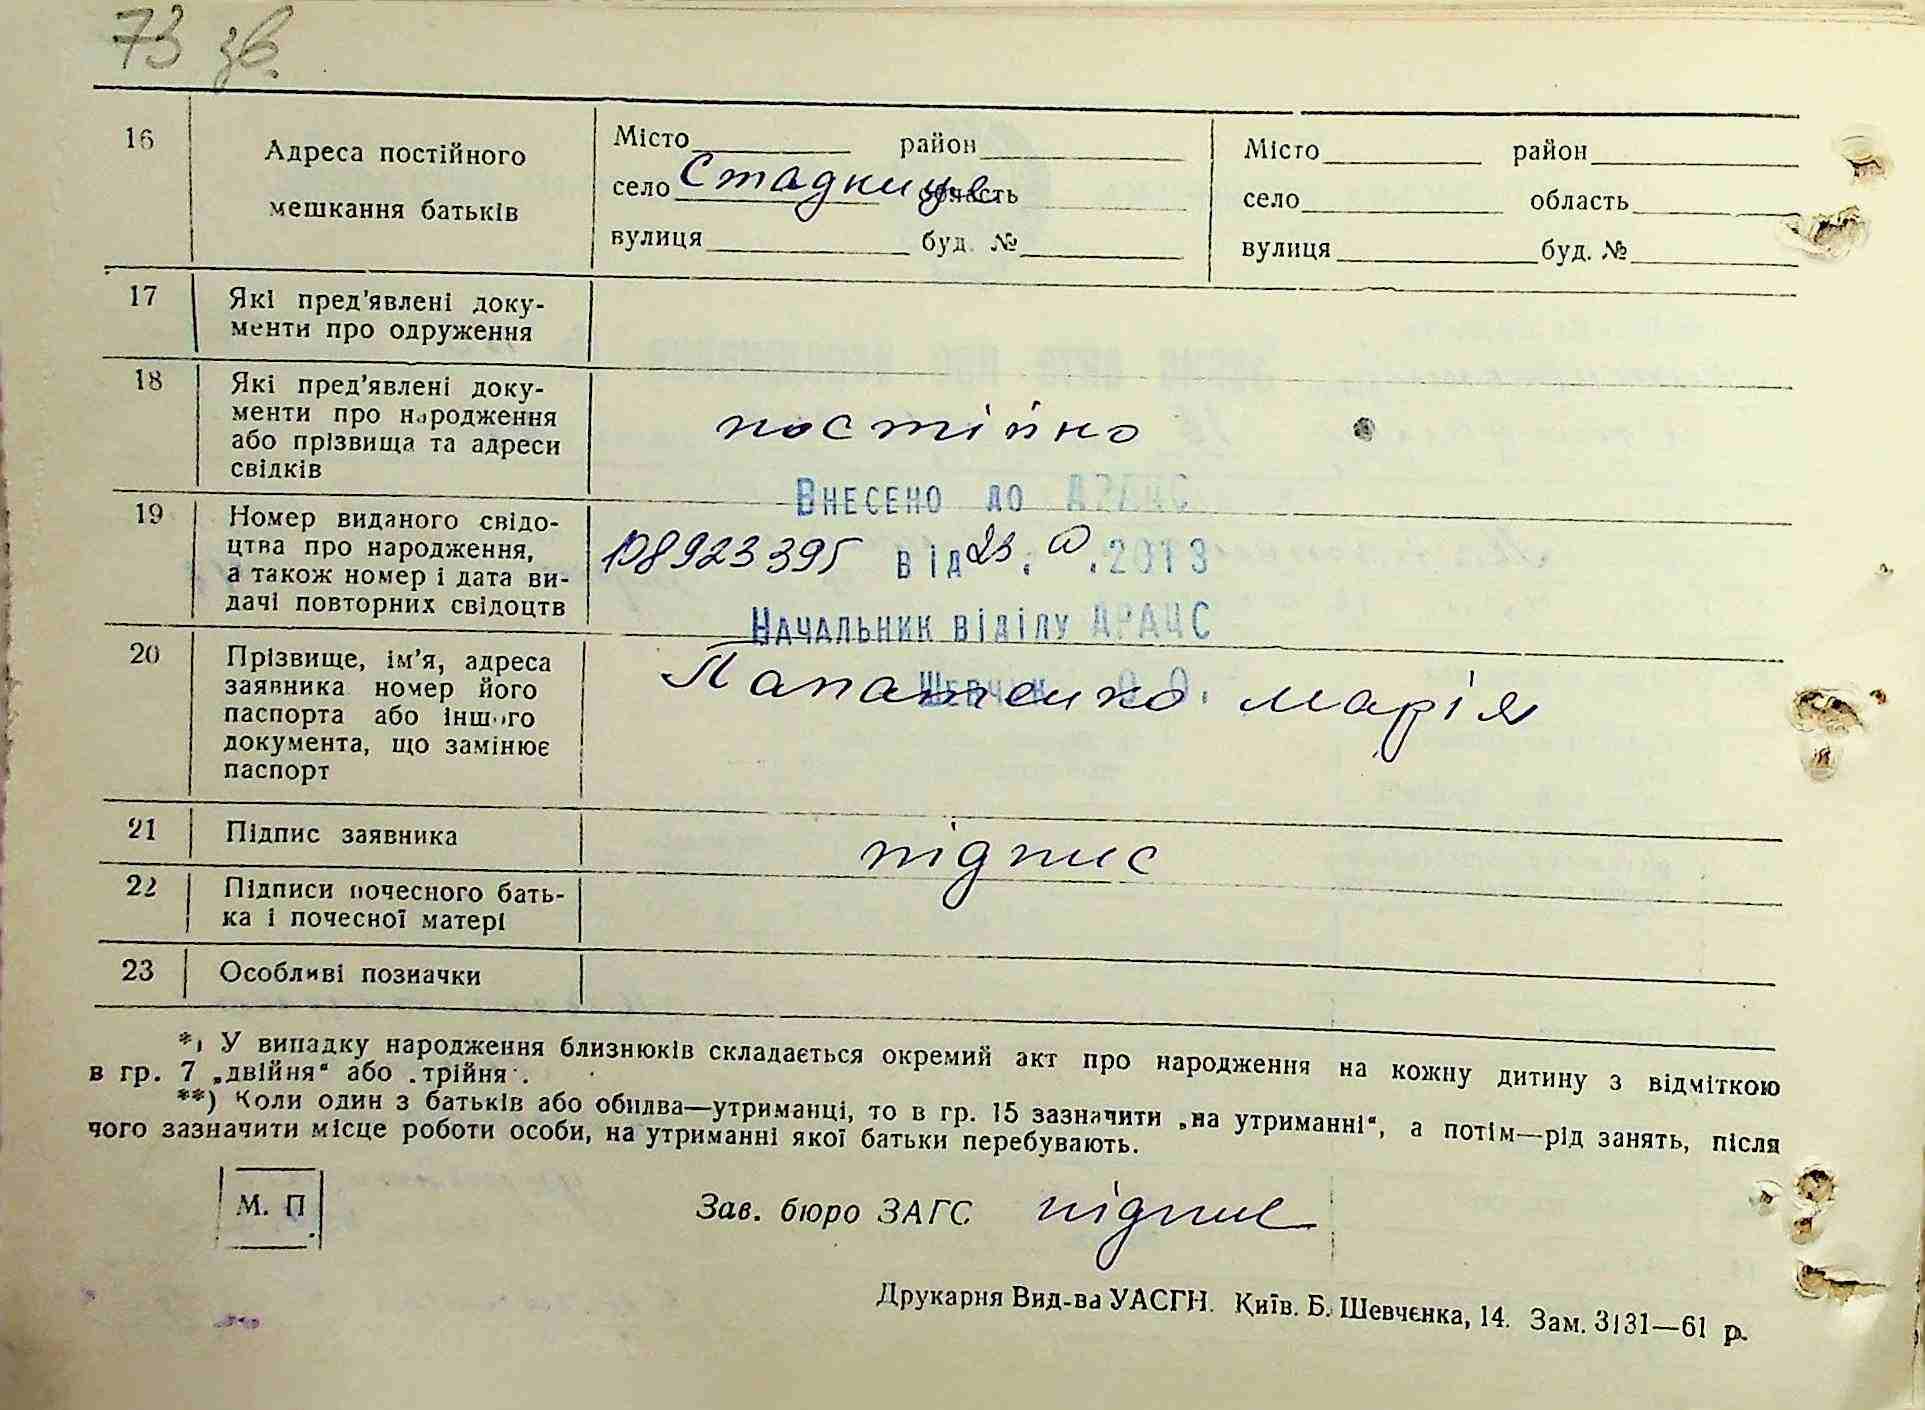 73 зв.
16 Адреса постійного мешкання батьків
Місто район
село Стадниця область
вулиця буд. №
Місто район
село область
вулиця буд. №
17 Які пред'явлені доку-
менти про одруження
18 Які пред'явлені доку-
менти про народження
або прізвища та адреси
свідків
постійно
Внесено до ДРАЦС
19 Номер виданого свідо-
цтва про народження,
а також номер і дата ви-
дачі повторних свідоцтв
108923395 від 23. .2013
Начальник відділу ДРАЦС
Шевчук О.О.
20 Прізвище, ім'я, адреса
заявника номер його
паспорта або іншого
документа, що замінює
паспорт
марія
21 Підпис заявника
підпис
22 Підписи почесного бать-
ка і почесної матері
23 Особливі позначки
*) У випадку народження близнюків складається окремий акт про народження на кожну дитину з відміткою
в гр. 7 „двійня“ або „трійня“.
**) Коли один з батьків або обидва—утриманці, то в гр. 15 зазначити „на утриманні“, а потім—рід занять, після
чого зазначити місце роботи особи, на утриманні якої батьки перебувають.
М. П.
Зав. бюро ЗАГС підпис
Друкарня Вид-ва УАСГН. Київ. Б. Шевченка, 14. Зам. 3131—61 р.